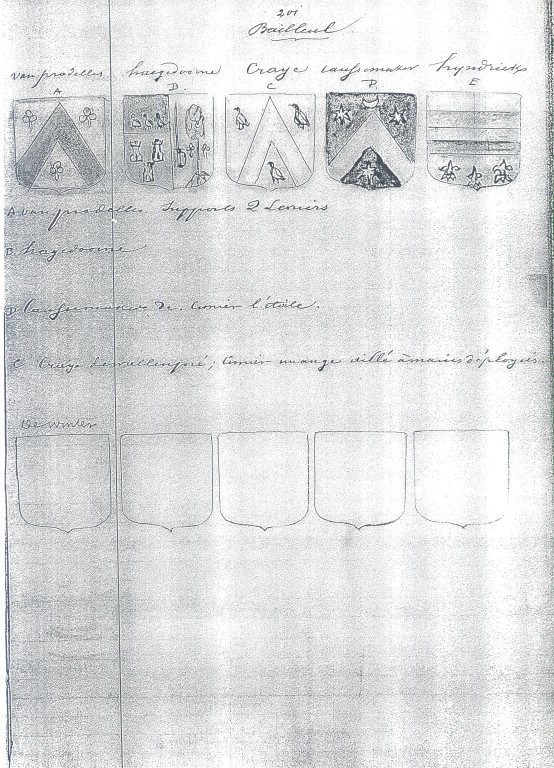 201
Bailleul
van pradelles haegedoorne Craye caussemaker hyndricks
A B. C D. E
A van pradelles Supports 2 Levriers
B hagedoorne
D Caussemaker de. Cimier l'étoile.
C Craye ; Cimier un ange aîllé à mains déployés.
De winter